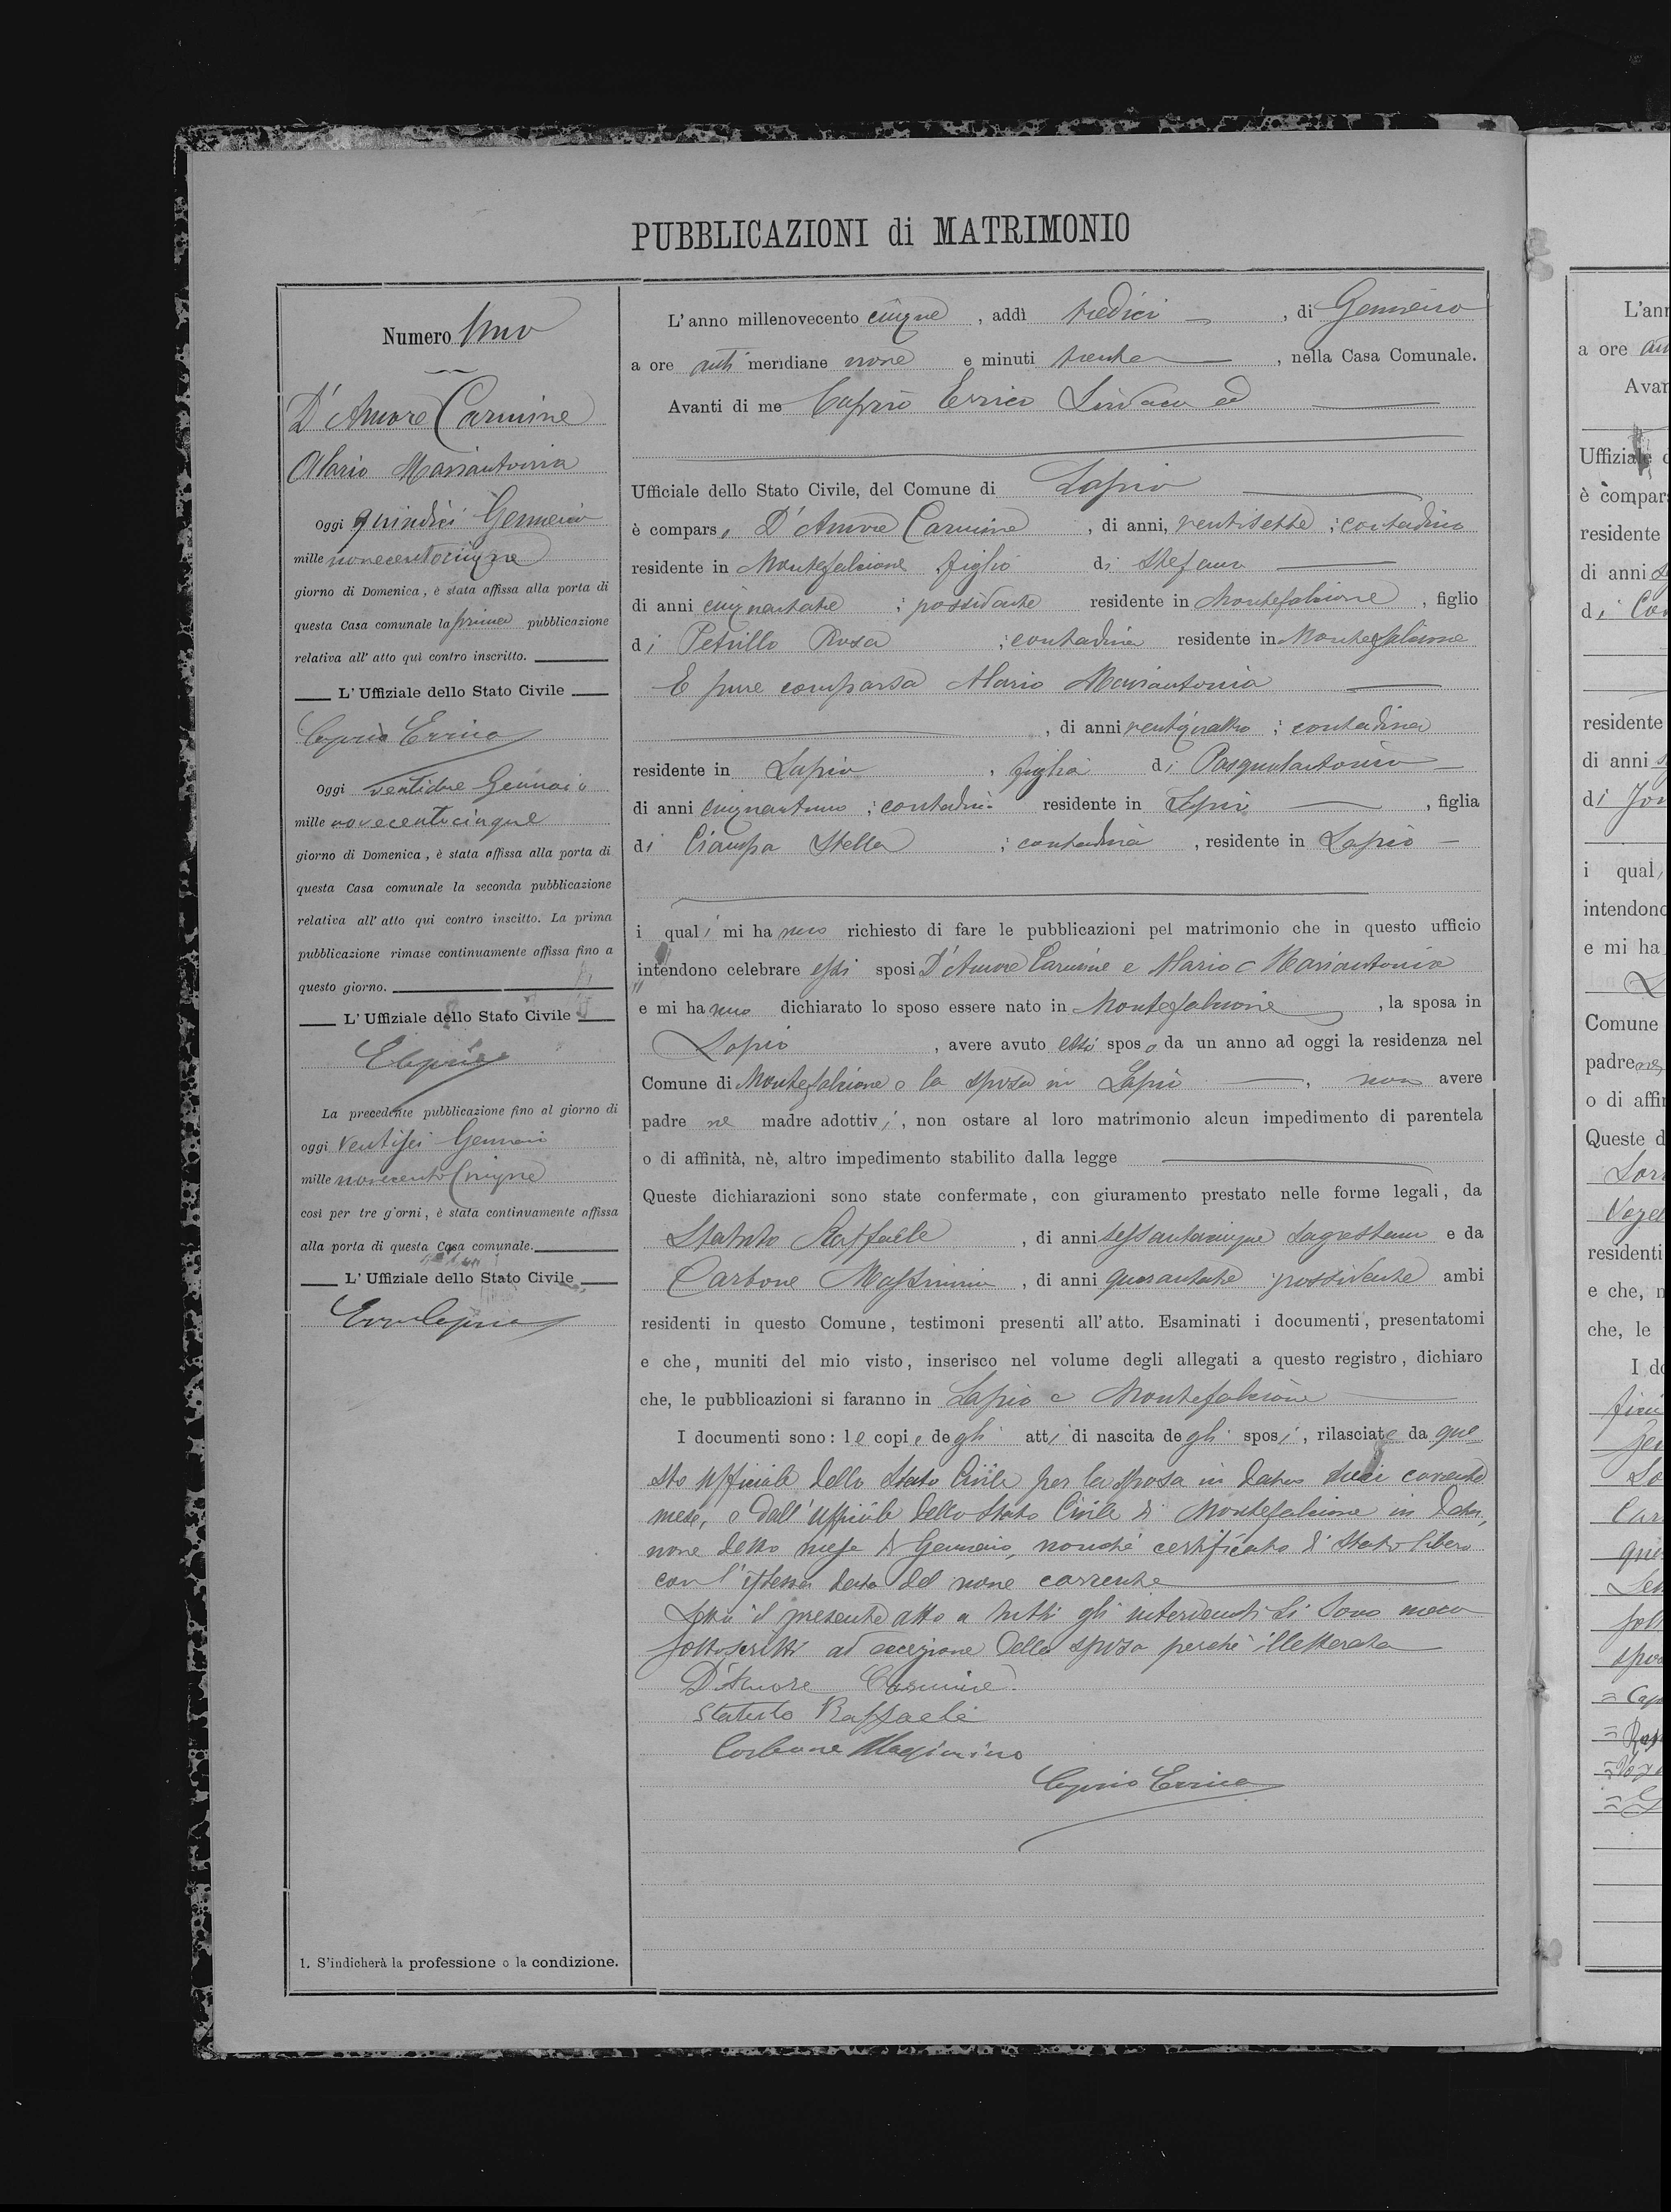 PUBBLICAZIONI di MATRIMONIO
Numero Uno
D'Amore Carmine
Alario Mariantonia
Oggi quindici Gennaio
mille novecentocinque
giorno di Domenica, è stata affissa alla porta di
questa Casa comunale la prima pubblicazione
relativa all' atto quì contro inscritto.
L' Uffiziale dello Stato Civile
Caprio Errico
Oggi ventidue Gennaio
mille novecentocinque
giorno di Domenica, è stata affissa alla porta di
questa Casa comunale la seconda pubblicazione
relativa all' atto qui contro inscitto. La prima
pubblicazione rimase continuamente affissa fino a
questo giorno.
L' Uffiziale dello Stato Civile
ECaprio
La precedente pubblicazione fino al giorno di
oggi Ventisei Gennaio
mille novecento Cinque
così per tre g'orni, è stata continuamente affissa
alla porta di questa Casa comunale.
L' Uffiziale dello Stato Civile
Err Caprio
1. S'indicherà la professione o la condizione.
L' anno millenovecento cinque, addì tredici, di Gennaio
a ore anti meridiane nove e minuti trenta, nella Casa Comunale.
Avanti di me Caprio Errico Sindaco ed
Ufficiale dello Stato Civile, del Comune di Lapio
è compars o D'Amore Carmine, di anni, ventisette; contadino
residente in Montefalcione figlio di Stefano
di anni cinquantatre; possidente residente in Montefalcione, figlio
di Petrillo Rosa; contadina residente in Montefalcione
E pure comparsa Alario Mariantonia
, di anni ventiquattro; contadina
residente in Lapio, figlia di Pasqualantonio
di anni cinquantuno; contadino residente in Lapio, figlia
di Ciampa Stella; contadina, residente in Lapio
i quali mi hanno richiesto di fare le pubblicazioni pel matrimonio che in questo ufficio
intendono celebrare essi sposi D'Amore Carmine e Alario Mariantonia
e mi hanno dichiarato lo sposo essere nato in Montefalcione, la sposa in
Lapio, avere avuto essi sposo da un anno ad oggi la residenza nel
Comune di Montefalcione e la sposa in Lapio, non avere
padre ne madre adottivi, non ostare al loro matrimonio alcun impedimento di parentela
o di affinità, nè, altro impedimento stabilito dalla legge
Queste dichiarazioni sono state confermate, con giuramento prestato nelle forme legali, da
Statuto Raffaele, di anni sessantacinque sagrestano e da
Carbone Massimino, di anni quarantatre possidente ambi
residenti in questo Comune, testimoni presenti all' atto. Esaminati i documenti, presentatomi
e che, muniti del mio visto, inserisco nel volume degli allegati a questo registro, dichiaro
che, le pubblicazioni si faranno in Lapio e Montefalcione
I documenti sono: le copie degli atti di nascita degli sposi, rilasciate da que
sto Ufficiale dello Stato Civile per la sposa in data dieci corrente
mese, e dall'Ufficiale dello Stato Civile di Montefalcione in data
nove detto mese di Gennaio, nonché certificato di Stato libero
con l'istessa data del nove corrente
Letto il presente atto a tutti gli intervenuti si sono meco
sottoscritti ad eccezione della sposa perché illetterata
D'Amore Carmine
Statuto Raffaele
Carbone Massimino
Caprio Errico
L'ann
a ore
Avan
Uffiziale d
è compar
residente
di anni
di
residente
di anni
di
i quali
intendono
e mi ha
Comune
padre
o di affin
Queste d
residenti
e che, m
che, le
I do